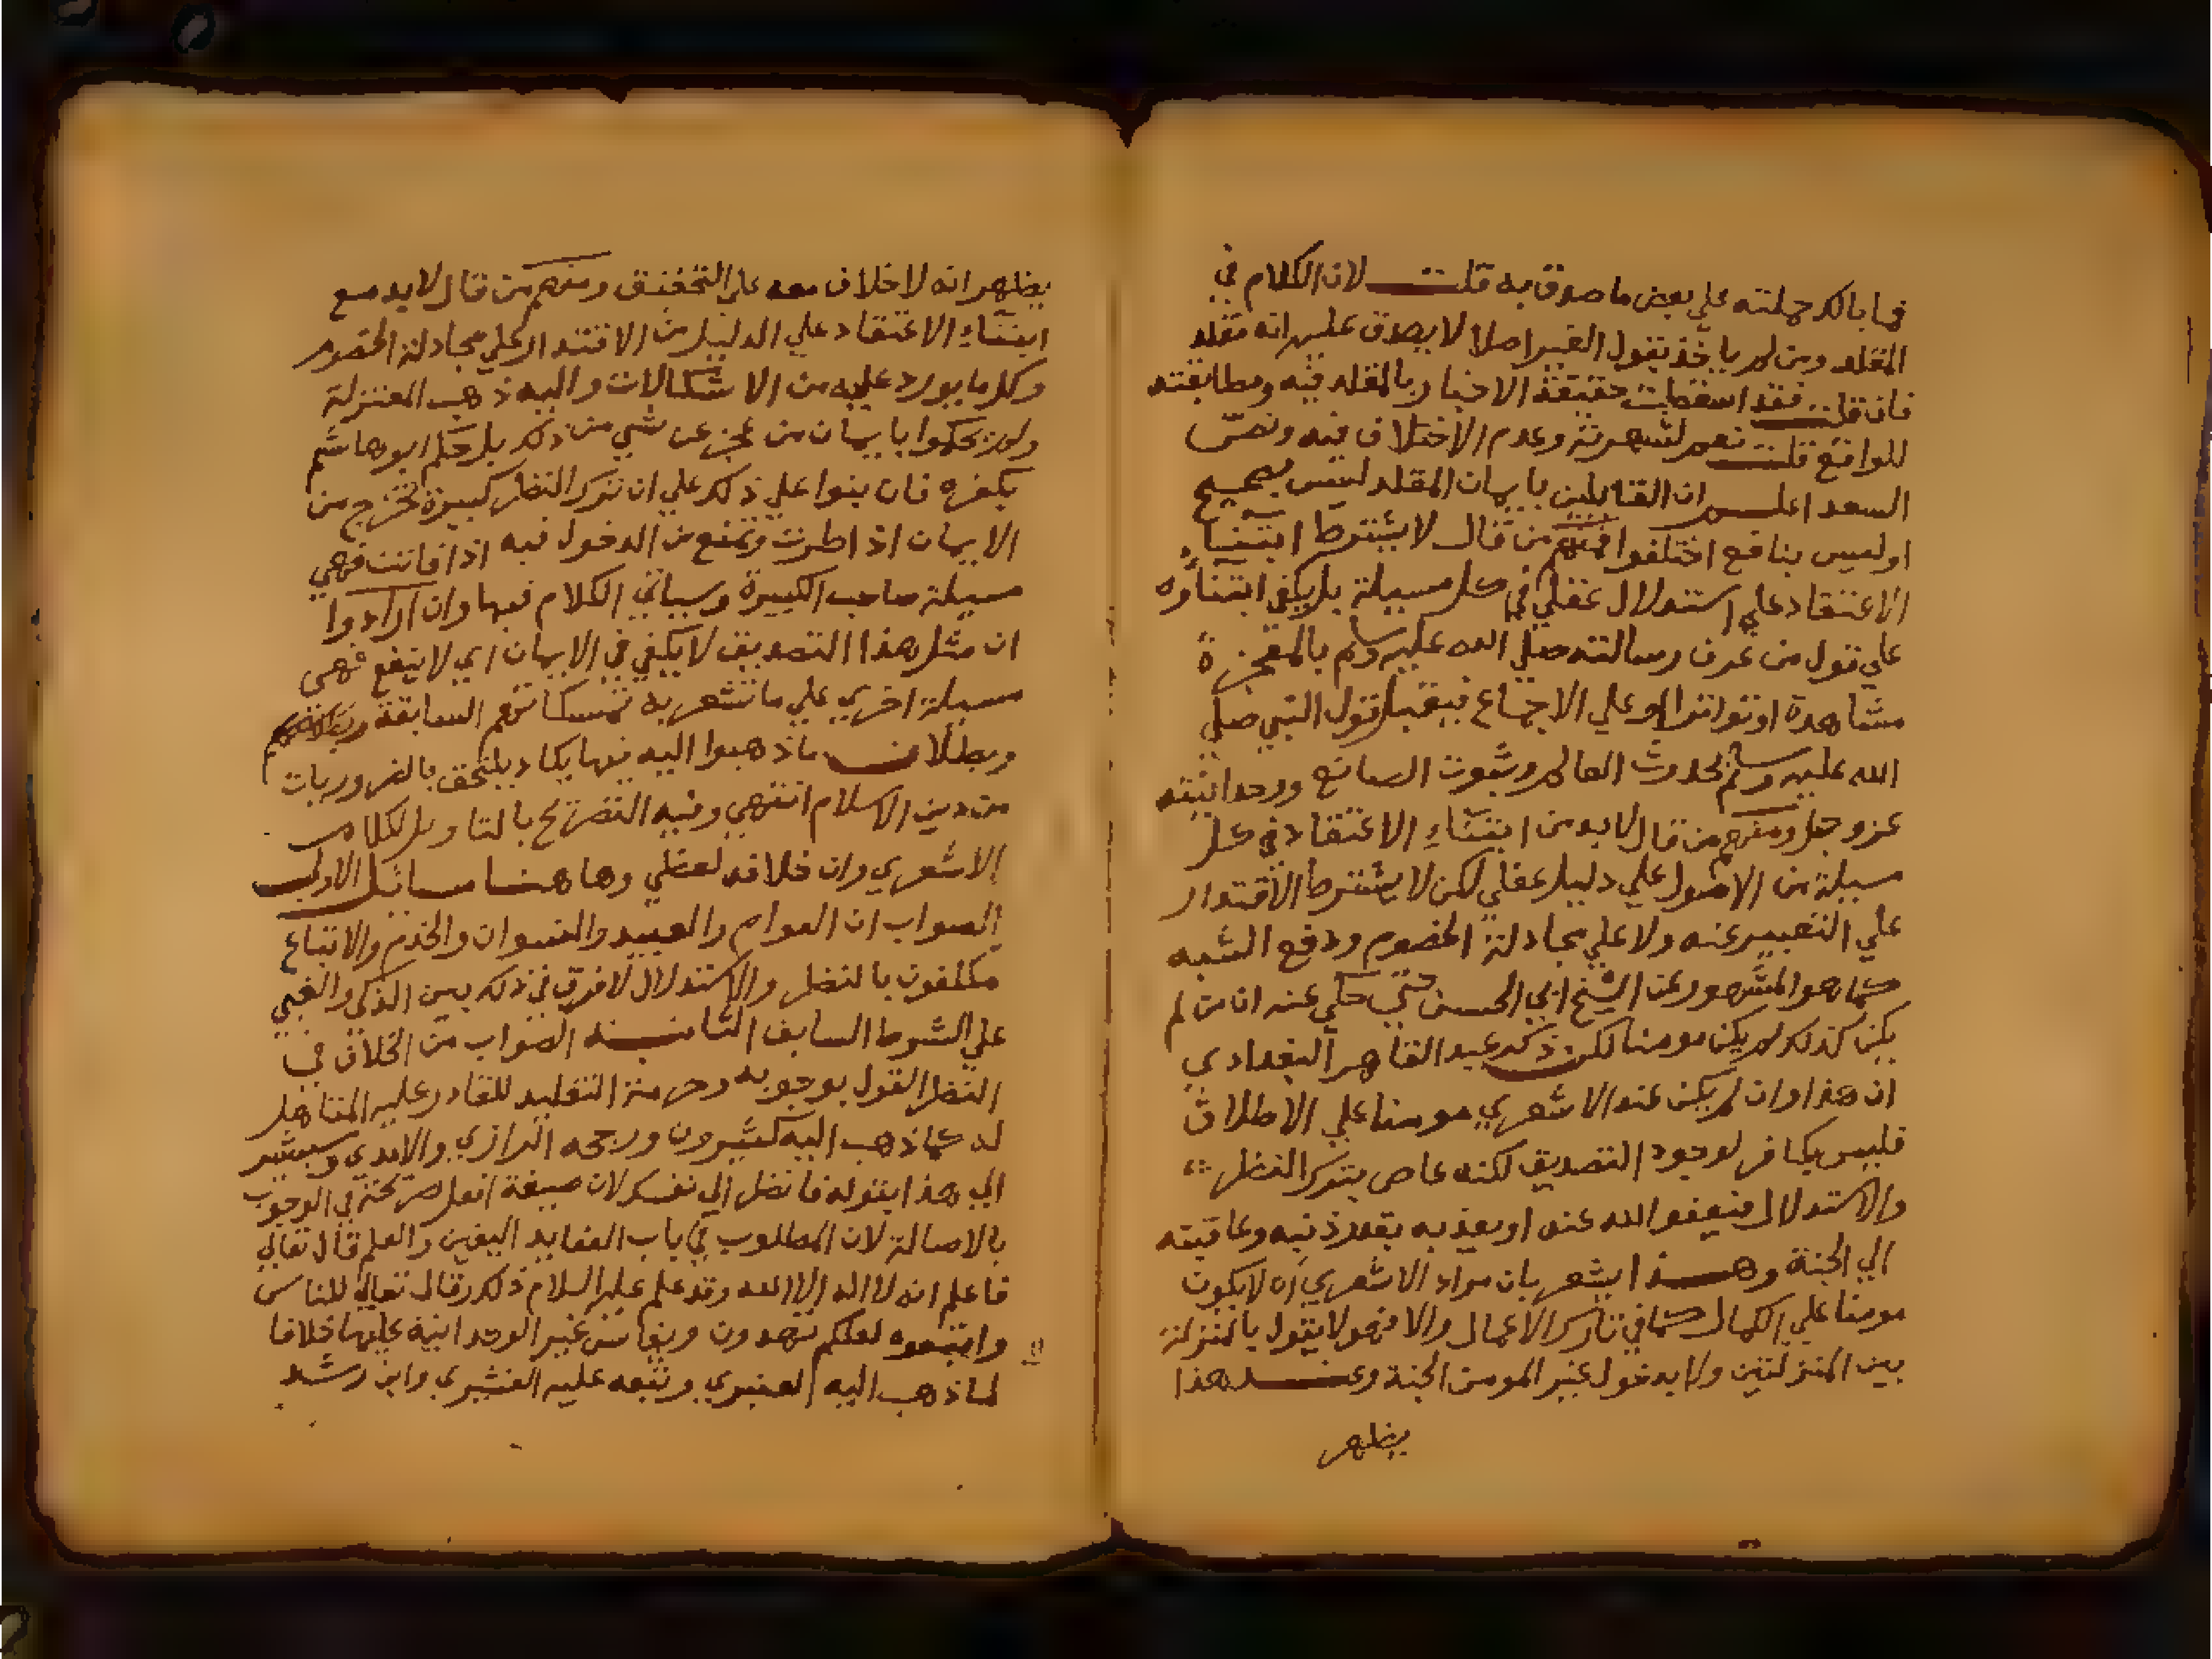 فما بالك حملته علي بعض ما صدق به قلت لان الكلام في
المقلد ومن لم ياخذ بقول الغير اصلا لا يصدق عليه انه مقلد
فان قلت فقد اسقطت حقيقة الاخبار بالمقلد فيه ومطابقته
للواقع قلت نعم لشهرته وعدم الاختلاف فيه ونص
السعد اعلم ان القايلين بايمان المقلد ليس بصحيح
اوليس بنافع اختلفوا فمنهم من قال لا يشترط ابتناء
الاعتقاد علي استدلال عقلي في كل مسيلة بل يكفي ابتناؤه
علي قول من عرف رسالته صلي الله عليه وسلم بالمعجزة
مشاهدة او تواترا او علي الاجماع فيقبل قول النبي صلي
الله عليه وسلم بحدوث العالم وثبوت الصانع ووحدانيته
عز وجل ومنهم من قال لابد من ابتناء الاعتقاد في كل
مسيلة من الاصول علي دليل عقلي لكن لا يشترط الاقتدار
علي التعبير عنه ولا علي مجادلة الخصوم ودفع الشبه
كما هو المشهور عن الشيخ ابي الحسن حتي حكي عنه ان من لم
يكن كذلك لم يكن مومنا لكن ذكر عبد القاهر البغدادي
ان هذا وان لم يكن عند الاشعري مومنا علي الاطلاق
فليس بكافر لوجود التصديق لكنه عاص بترك النظر
والاستدلال فيعفو الله عنه او يعذبه بقدر ذنبه وعاقبته
الي الجنة وهذا يشعر بان مراد الاشعري انه لا يكون
مومنا علي الكمال كما في تارك الاعمال والا فهو لا يقول بالمنزلة
بين المنزلتين ولا بدخول غير المومن الجنة وعند هذا
يظهر
يظهر انه لا خلاف معه علي التحقيق ومنهم من قال لابد مع
ابتناء الاعتقاد علي الدليل من الاقتدار علي مجادلة الخصوم
وكل ما يورد عليه من الاشكالات واليه ذهب المعتزلة
ولم يحكموا بايمان من عجز عن شي من ذلك بل حكم ابو هاشم
بكفره فان بنوا علي ذلك علي ان ترك النظر كبيرة تخرج من
الايمان اذا طرت وتمنع من الدخول فيه اذا فاتت فهي
مسيلة صاحب الكبيرة وسياتي الكلام فيها وان ارادوا
ان مثل هذا التصديق لا يكفي في الايمان اي لا ينفع فهي
مسيلة اخري علي ما تشعر به تمسكاتهم السابقة
وبطلان ما ذهبوا اليه فيها يكاد يلتحق بالضروريات
من دين الاسلام انتهي وفيه التصريح بالتاويل لكلام
الاشعري وان خلافه لفظي وها هنا مسائل الاولي
الصواب ان العوام والعبيد والنسوان والخدم والاتباع
مكلفون بالنظر والاستدلال لا فرق في ذلك بين الذكي والغبي
علي الشرط السابق الثانية الصواب من الخلاف في
النظر القول بوجوبه وحرمة التقليد للقادر عليه المتاهل
له كما ذهب اليه كثيرون ورجحه الرازي والامدي وسيشير
الي هذا بقوله فانظر الي نفسك لان صيغة افعل صريحة في الوجوب
بالاصالة لان المطلوب في باب العقايد اليقين والعلم قال تعالي
فاعلم انه لا اله الا الله وقد علم عليه السلام ذلك وقال تعالي للناس
واتبعوه لعلكم تهتدون ويقاس غير الوحدانية عليها خلافا
لما ذهب اليه العنبري وتبعه عليه القشيري وابن رشد